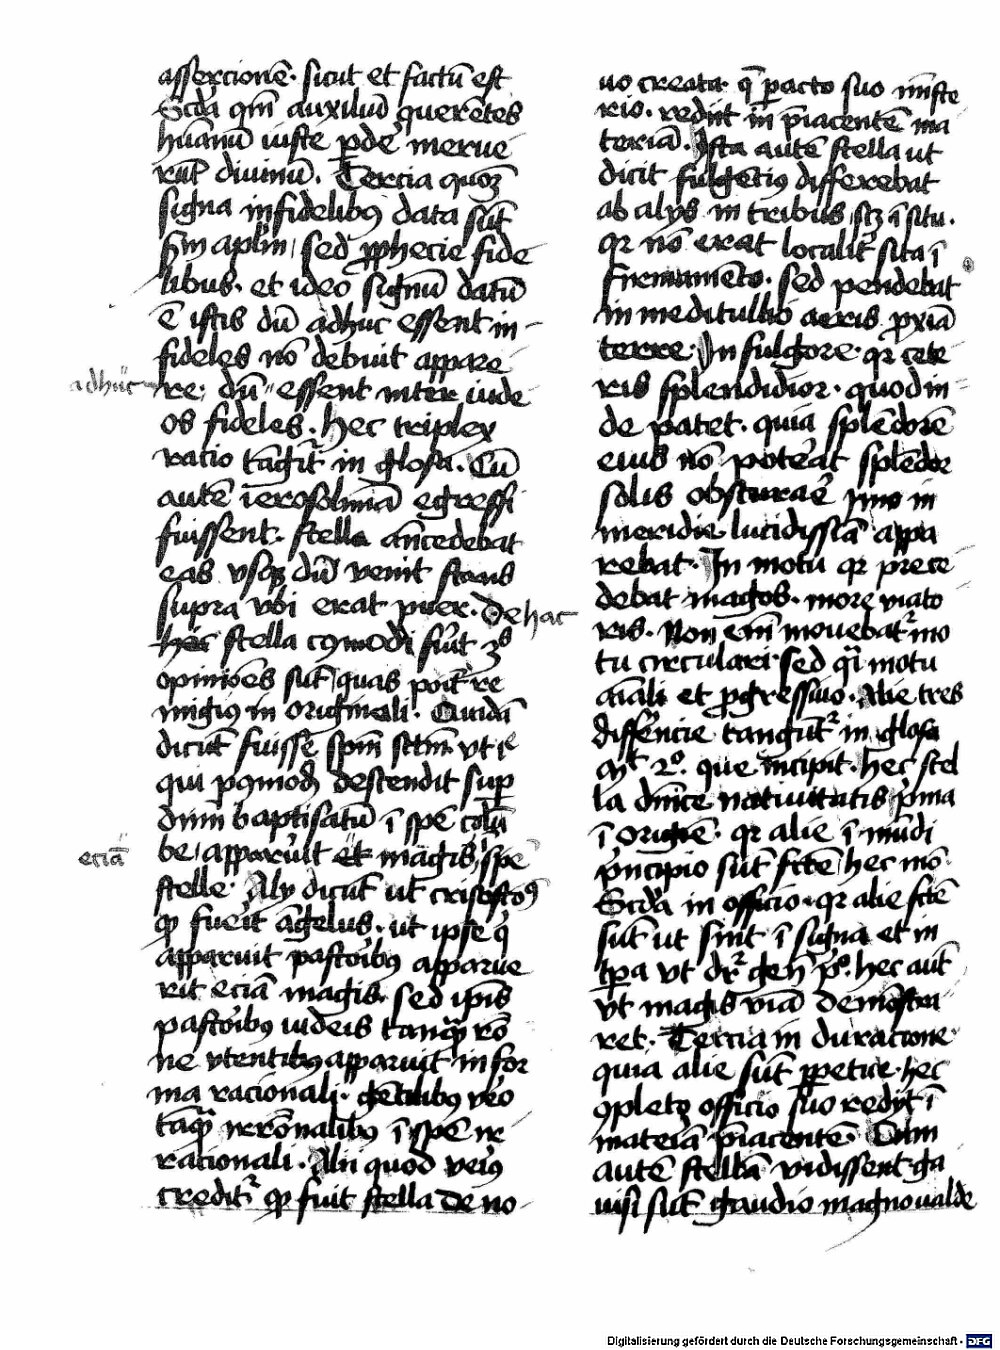 assercionē. sicut et factū est
Scd̄a qm̄ auxiliū querētes
hūanū iuste ꝑdē merue
rūt diuinū. Tercia quoꝫ
signa infidelibꝰ data sūt
scd̄m apłm sed ꝓphecie fide
libus. et ideo signū datū
ē istis dū adhuc essent in-
fideles nō debuit appare
adhuc
re; dū essent inter iude
os fideles. hec triplex
racio tāgit̄ in glosa. Cū
autē ierosolimā egressi
fuissent. stella ancedebat
eas vsqꝫ dū venit stans
supra vbi erat puer. De hac
hec stella
opiniōes sūt quas
migiꝰ in originali. Quidā
dicūt fuisse spm̄ sctm̄ vt
qui descendit sup̄
dn̄m baptisatū ī spē colū
eciā
be apparuit et magis spē
stelle. Alij dicūt ut crisostoꝰ
ꝙ fuerit āgelus. ut ipse q
apparuit pastoribꝰ apparue
rit eciā magis. sed ip̄is
pastoribꝰ iudeis tanq̄ rō
ne vtentibꝰ apparuit in for
ma racionali. gētilibꝰ vero
tāq̄ irrōnalibꝰ ī spē ir
racionali. Alii quod veriꝰ
credit̄ ꝙ fuit stella de no
uo creata. q̄ ꝑacto suo mīste
rio. redijt in p̄iacentē ma
teriā. Ista autē stella ut
dicit fulgētiꝰ differebat
ab alijs in tribus scꝫ ī situ.
qr nō erat localit̄ sita ī
firmamēto. sed pendebat
in meditullio aeris ꝓxiā
terre. In fulgore. qr cete
ris splendidior. quod in-
de patet. quia splēdorē
eius nō poterat splēdor
solis obscurare ymo in
meridie lucidissīa appa
rebat. In motu qr prece
debat magos. more viato
ris. Non em̄ mouebat̄ mo
tu circulari. sed q̄i motu
aīali et ꝓgressiuo. Alie tres
differēcie tangūt̄ in glosa
Mt 2º. que incipit. hec stel
la dn̄ice natiuitatis p̄ma
ī origīe. qr alie ī mūdi
p̄ncipio sūt fctē hec mō
Scd̄a in officio. qr alie fctē
sūt ut sint ī signa et in
tp̄a vt dr̄ geñ pº. hec aut̄
vt magis viā demōstra
ret. Tercia in duracione
quia alie sūt ꝑpetue. hec
ꝯpleto officio suo redijt ī
materiā p̄iacentē. Cum
autē stellā vidissent ga
uisi sūt gaudio magno valde
Digitalisierung gefördert durch die Deutsche Forschungsgemeinschaft - DFG